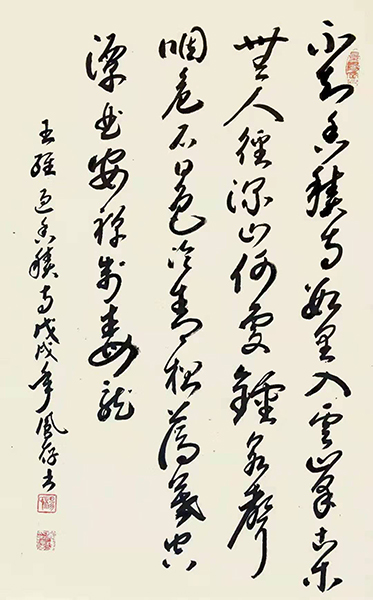 不知香積寺數里入雲峯古木
無人徑深山何處鐘泉聲
咽危石日色冷青松薄暮空
潭曲安禪制毒龍
王維過香積寺戊戌年存書